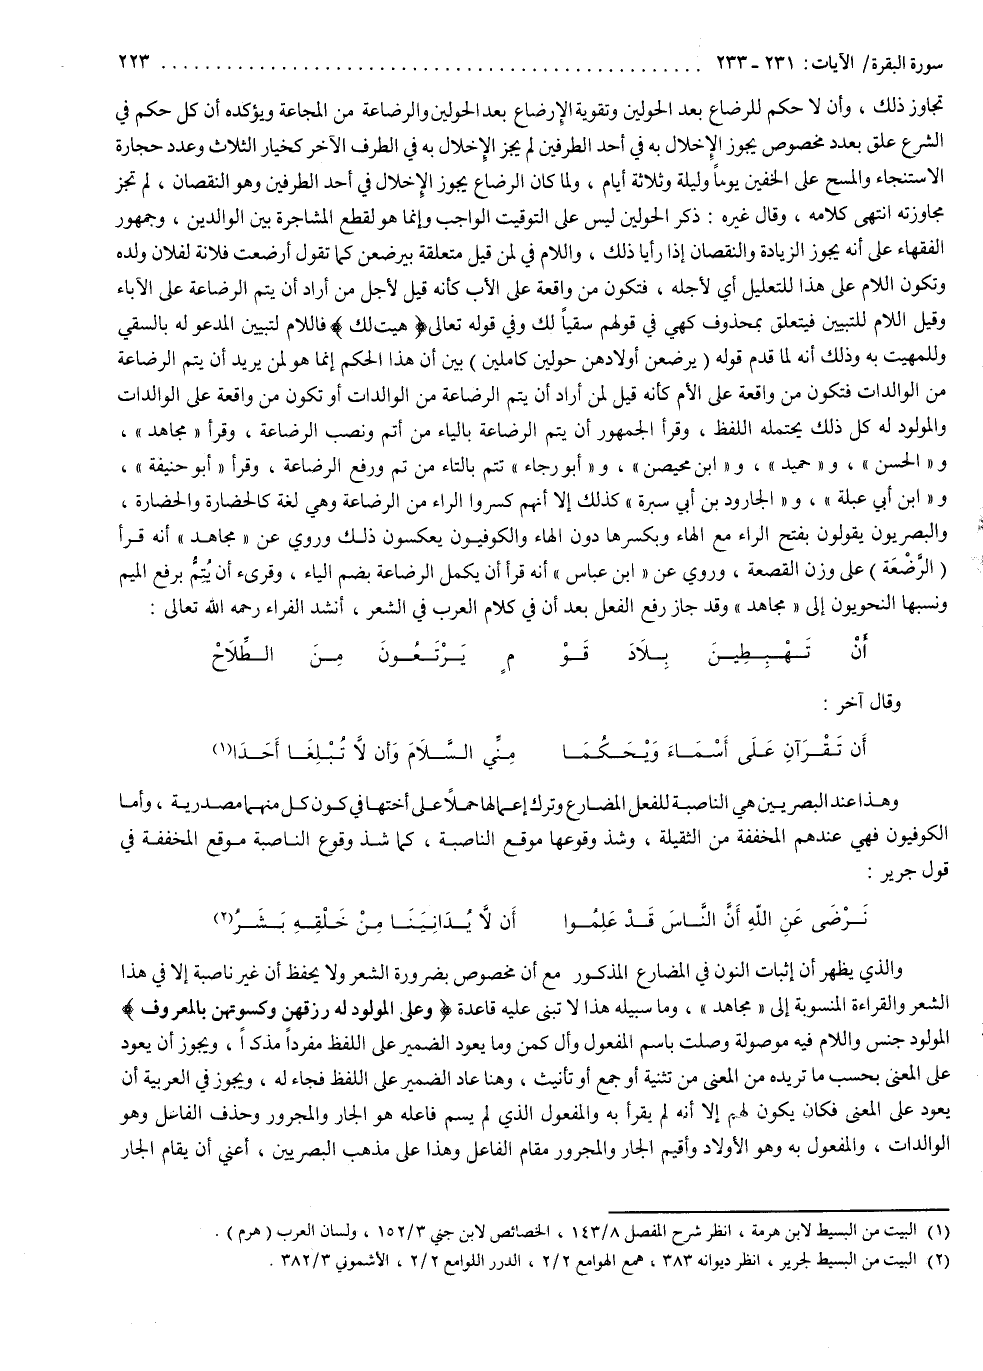 سورة البقرة/ الآيات: ٢٣١ ـ ٢٣٣ .......................................................... ٢٢٣
تجاوز ذلك ، وأن لا حكم للرضاع بعد الحولين وتقوية الإرضاع بعد الحولين والرضاعة من المجاعة ويؤكده أن كل حكم في
الشرع علق بعدد مخصوص يجوز الإخلال به في أحد الطرفين لم يجز الإخلال به في الطرف الآخر كخيار الثلاث وعدد حجارة
الاستنجاء والمسح على الخفين يوماً وليلة وثلاثة أيام ، ولما كان الرضاع يجوز الإخلال في أحد الطرفين وهو النقصان ، لم تجز
مجاوزته انتهى كلامه ، وقال غيره : ذكر الحولين ليس على التوقيت الواجب وإنما هو لقطع المشاجرة بين الوالدين ، وجمهور
الفقهاء على أنه يجوز الزيادة والنقصان إذا رأيا ذلك ، واللام في لمن قيل متعلقة بيرضعن كما تقول أرضعت فلانة لفلان ولده
وتكون اللام على هذا للتعليل أي لأجله ، فتكون من واقعة على الأب كأنه قيل لأجل من أراد أن يتم الرضاعة على الآباء
وقيل اللام للتبيين فيتعلق بمحذوف كهي في قولهم سقياً لك وفي قوله تعالى ﴿ هيت لك ﴾ فاللام لتبيين المدعو له بالسقي
وللمهيت به وذلك أنه لما قدم قوله ( يرضعن أولادهن حولين كاملين ) بين أن هذا الحكم إنما هو لمن يريد أن يتم الرضاعة
من الوالدات فتكون من واقعة على الأم كأنه قيل لمن أراد أن يتم الرضاعة من الوالدات أو تكون من واقعة على الوالدات
والمولود له كل ذلك يحتمله اللفظ ، وقرأ الجمهور أن يتم الرضاعة بالياء من أتم ونصب الرضاعة ، وقرأ « مجاهد » ،
و« الحسن » ، و« حميد » ، و« ابن محيصن » ، و« أبو رجاء » تتم بالتاء من تم ورفع الرضاعة ، وقرأ « أبو حنيفة » ،
و« ابن أبي عبلة » ، و« الجارود بن أبي سبرة » كذلك إلا أنهم كسروا الراء من الرضاعة وهي لغة كالحضارة والحضارة ،
والبصريون يقولون بفتح الراء مع الهاء وبكسرها دون الهاء والكوفيون يعكسون ذلك وروي عن « مجاهد » أنه قرأ
( الرَّضْعَة ) على وزن القصعة ، وروي عن « ابن عباس » أنه قرأ أن يكمل الرضاعة بضم الياء ، وقرىء أن يُتِمُّ برفع الميم
ونسبها النحويون إلى « مجاهد » وقد جاز رفع الفعل بعد أن في كلام العرب في الشعر ، أنشد الفراء رحمه الله تعالى :
أَنْ تَهْبِطِينَ بِلَادَ قَوْ مٍ يَرْتَعُونَ مِنَ الطِّلَاحْ
وقال آخر :
أَن تَقْرَآنِ عَلَى أَسْمَاءَ وَيْحَكُمَا مِنِّي السَّلَامَ وَأَن لَّا تُبْلِغَا أَحَدَا(١)
وهذا عند البصريين هي الناصبة للفعل المضارع وترك إعمالها حملاً على أختها في كون كل منهما مصدرية ، وأما
الكوفيون فهي عندهم المخففة من الثقيلة ، وشذ وقوعها موقع الناصبة ، كما شذ وقوع الناصبة موقع المخففة في
قول جرير :
نَرْضَى عَنِ اللَّهِ أَنَّ النَّاسَ قَدْ عَلِمُوا أَن لَّا يُدَانِيَنَا مِنْ خَلْقِهِ بَشَرُ(٢)
والذي يظهر أن إثبات النون في المضارع المذكور مع أن مخصوص بضرورة الشعر ولا يحفظ أن غير ناصبة إلا في هذا
الشعر والقراءة المنسوبة إلى « مجاهد » ، وما سبيله هذا لا تبنى عليه قاعدة ﴿ وعلى المولود له رزقهن وكسوتهن بالمعروف ﴾
المولود جنس واللام فيه موصولة وصلت باسم المفعول وأل كمن وما يعود الضمير على اللفظ مفرداً مذكراً ، ويجوز أن يعود
على المعنى بحسب ما تريده من المعنى من تثنية أو جمع أو تأنيث ، وهنا عاد الضمير على اللفظ فجاء له ، ويجوز في العربية أن
يعود على المعنى فكان يكون لهم إلا أنه لم يقرأ به والمفعول الذي لم يسم فاعله هو الجار والمجرور وحذف الفاعل وهو
الوالدات ، والمفعول به وهو الأولاد وأقيم الجار والمجرور مقام الفاعل وهذا على مذهب البصريين ، أعني أن يقام الجار
(١) البيت من البسيط لابن هرمة ، انظر شرح المفصل ١٤٣/٨ ، الخصائص لابن جني ١٥٢/٣ ، ولسان العرب ( هرم ) .
(٢) البيت من البسيط لجرير ، انظر ديوانه ٣٨٣ ، همع الهوامع ٢/٢ ، الدرر اللوامع ٢/٢ ، الأشموني ٣٨٢/٣ .